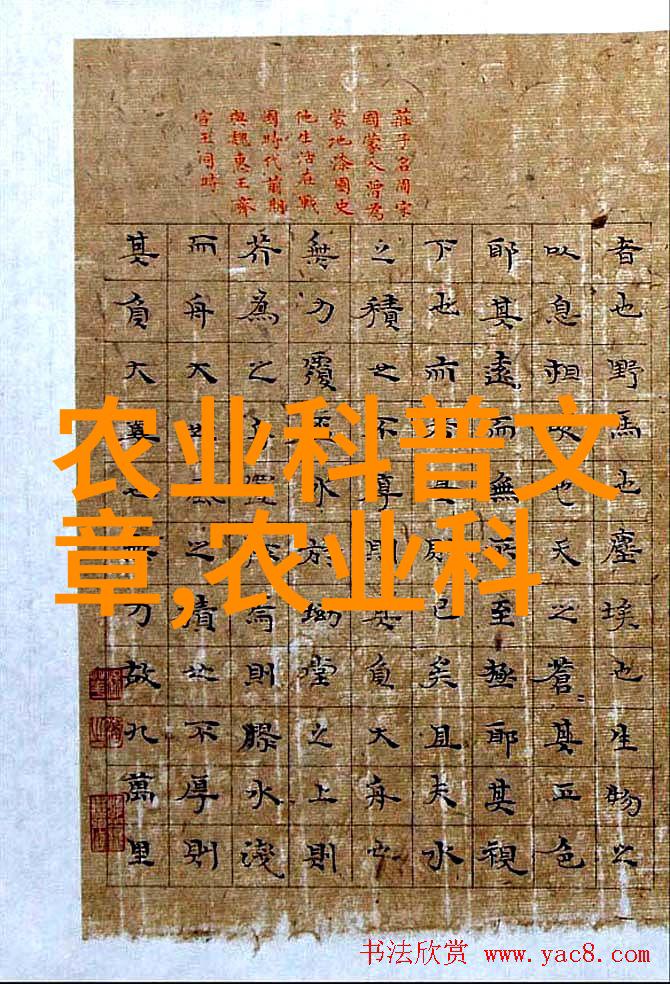 莊子名周宋
國蒙人曾為
蒙地漆園史
他生活在戰
國時代前期
與魏惠王齊
宣王同時
者也野馬也塵埃也生物之
以息相吹也天之蒼〻其正色
耶其遠而無所至極耶其視
下也而若是則已矣且夫水
之積也不厚則其負大舟也
無力覆杯水於坳堂之上則
芥為之舟置杯焉則膠水淺
而舟大也風之積也不厚則
其負大翼也無力故九萬里
农业科普文
章,农业科
书法欣赏 www.yac8.com